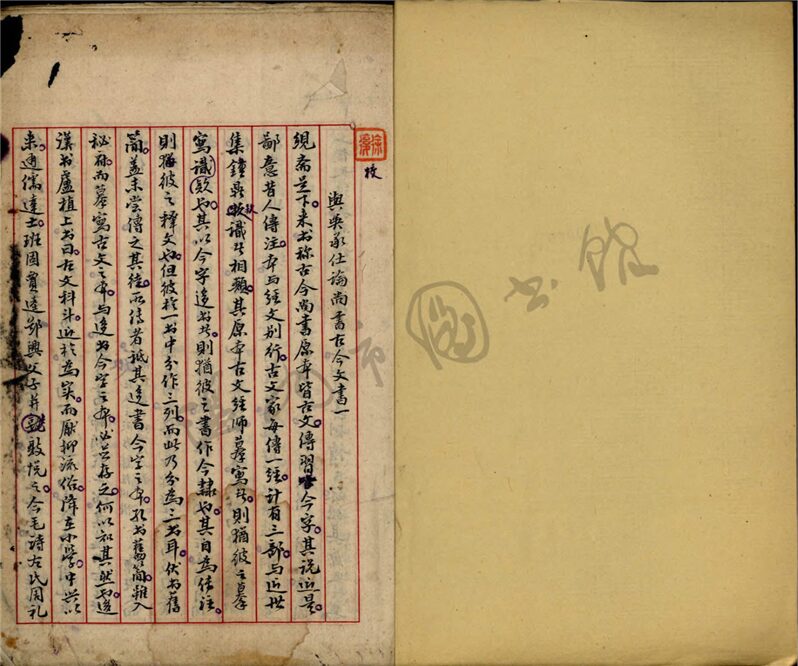 與吳承仕論尚書古今文書一
絸齋足下。来書称古今尚書原本皆古文。傳習今字。其説近是。
鄙意昔人傳注。本与經文別行。古文家每傳一經。計有三部。与近世
集鐘鼎款識者相類。其原本古文經師摹寫者。則猶彼之摹
寫款識也。其以今字迻書者。則猶彼之書作今隸也。其自為傳注
則猶彼之釋文也。但彼於一書中分作三列。而此乃分為三書耳。伏書舊
簡。蓋未尝傳之其徒。所傳者祇其迻書今字之本。孔書舊簡雖入
秘府。而摹寫古文之本。与迻書今字之本。必并存之。何以知其然也。
漢書盧植上書曰。古文科斗。近於為实。而厭抑流俗。降在小學。中兴以
来。通儒達士。班固賈逵鄭興父子。并敦悅之。今毛詩左氏周礼